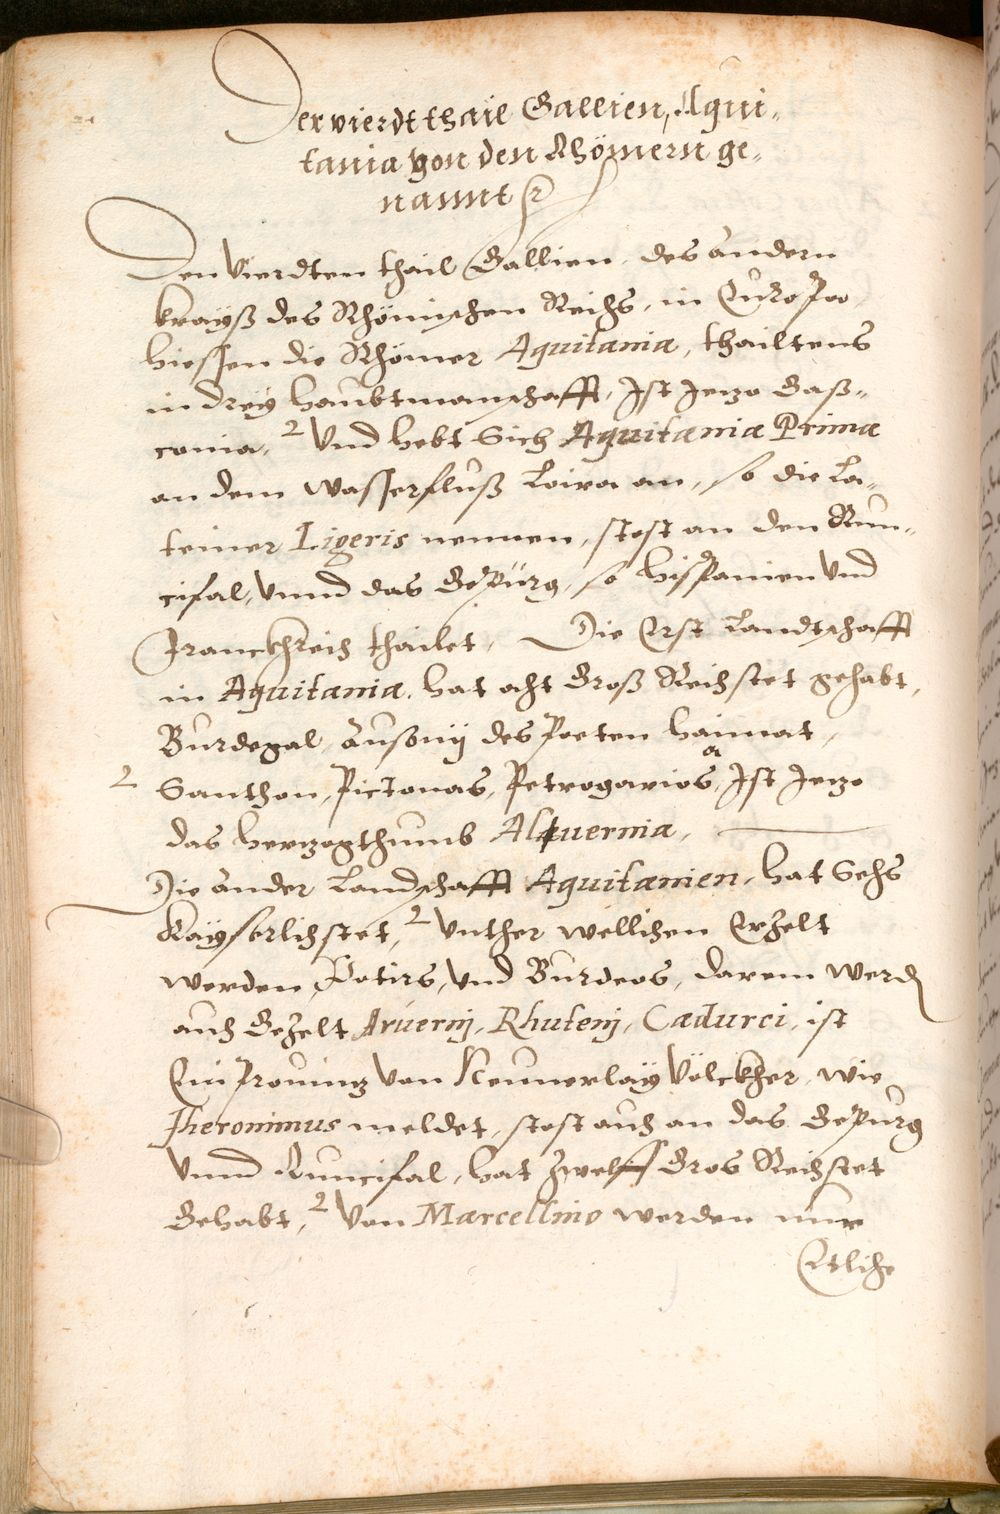 Der vierdt thail Gallien, Aqui-
tania von den Rhömern ge-
nannt
Den vierdten thail Gallien, des andern
krayß des Rhömischen Reichs, in Europa
hiessen die Rhömer Aquitania, thailtens
in drey haubtmanschafft, Ist Jeczo Gaß-
conia, 2 Vnd hebt Sich Aquitania Prima
an dem wasserfluß Loira an, so die La-
teiner Ligeris nennen, stost an den Run-
cifal, vnnd das Gepürg, so hispanien vnd
Franckhreich thailet, Die Erst Landtschafft
in Aquitania, hat acht Groß Reichstet gehabt,
Burdegal, Ausonij des Poeten haimat,
2 Santhon, Pictonas, Petrogarios, a Ist Jeczo
das herczogthumb Aluernia,
Die ander Landschafft Aquitanien, hat Sechs
Kayserlichstet, 2 vnther wellichen Erzelt
werden, Potirs, vnd Burdeos, darein werden
auch Gezelt Aruernj, Rhutenj, Cadurci, ist
Ein Prouintz von Neunerlay Völckher, wie
Jheronimus meldet, stost auch an das Gepurg
vnnd Runcifal, hat zwelff Gros Reichstet
Gehabt, 2 Von Marcellino werden nur
Etliche